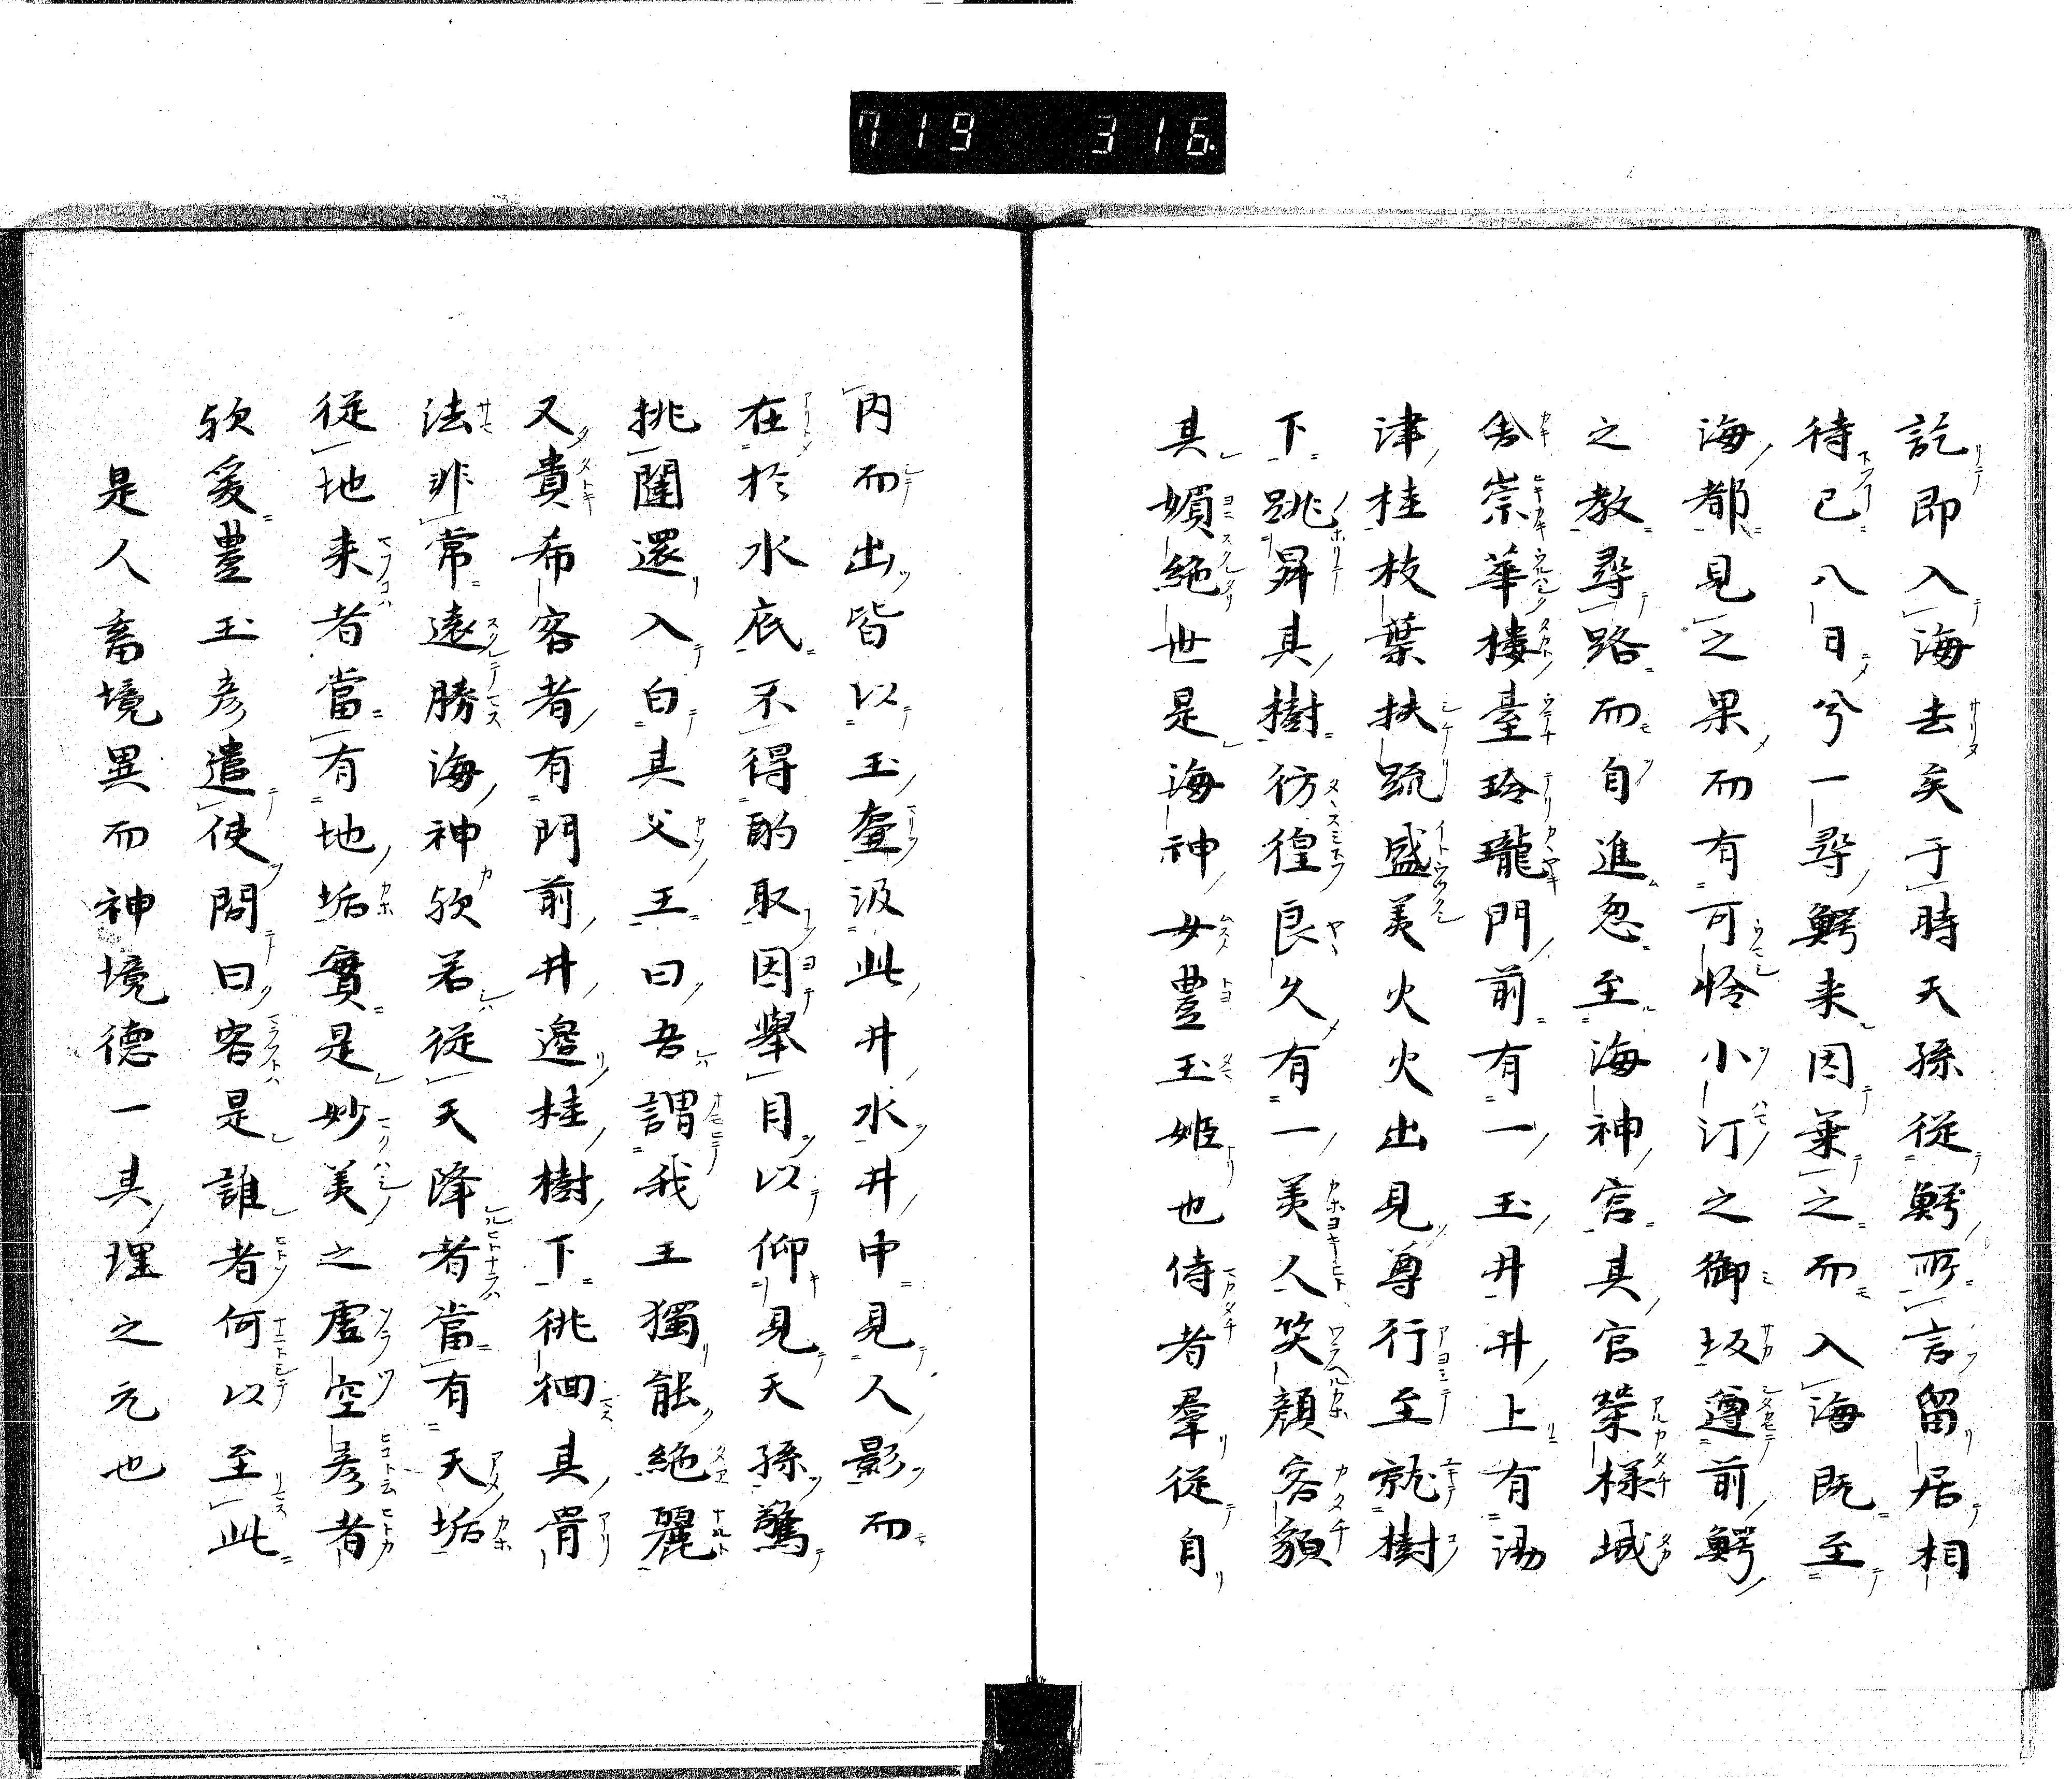 719 316
訖即入海去矣于時天孫從鰐所言留居相
待已八日兮一尋鰐来因乗之而入海既至
海都見之果而有可怜小汀之御坂遵前鰐
之教尋路而自進忽至海神宮其宮榮様城
舎崇華樓臺玲瓏門前有一玉井井上有湯
津桂枝葉扶疏盛美火火出見尊行至就樹
下跳昇其樹彷徨良久有一美人笑顔容貌
其嬪絶世是海神女豊玉姫也侍者羣從自
内而出皆以玉壷汲此井水井中見人影而
在於水底不得酌取因舉目以仰見天孫驚
挑闥還入白其父王曰吾謂我王獨能絶麗
又貴希客者有門前井邉桂樹下徘徊其骨
法非常遠勝海神欤若從天降者當有天垢
從地来者當有地垢實是妙美之虚空彦者
欤爰豊玉彦遣使問曰客是誰者何以至此
是人畜境異而神境德一其理之元也